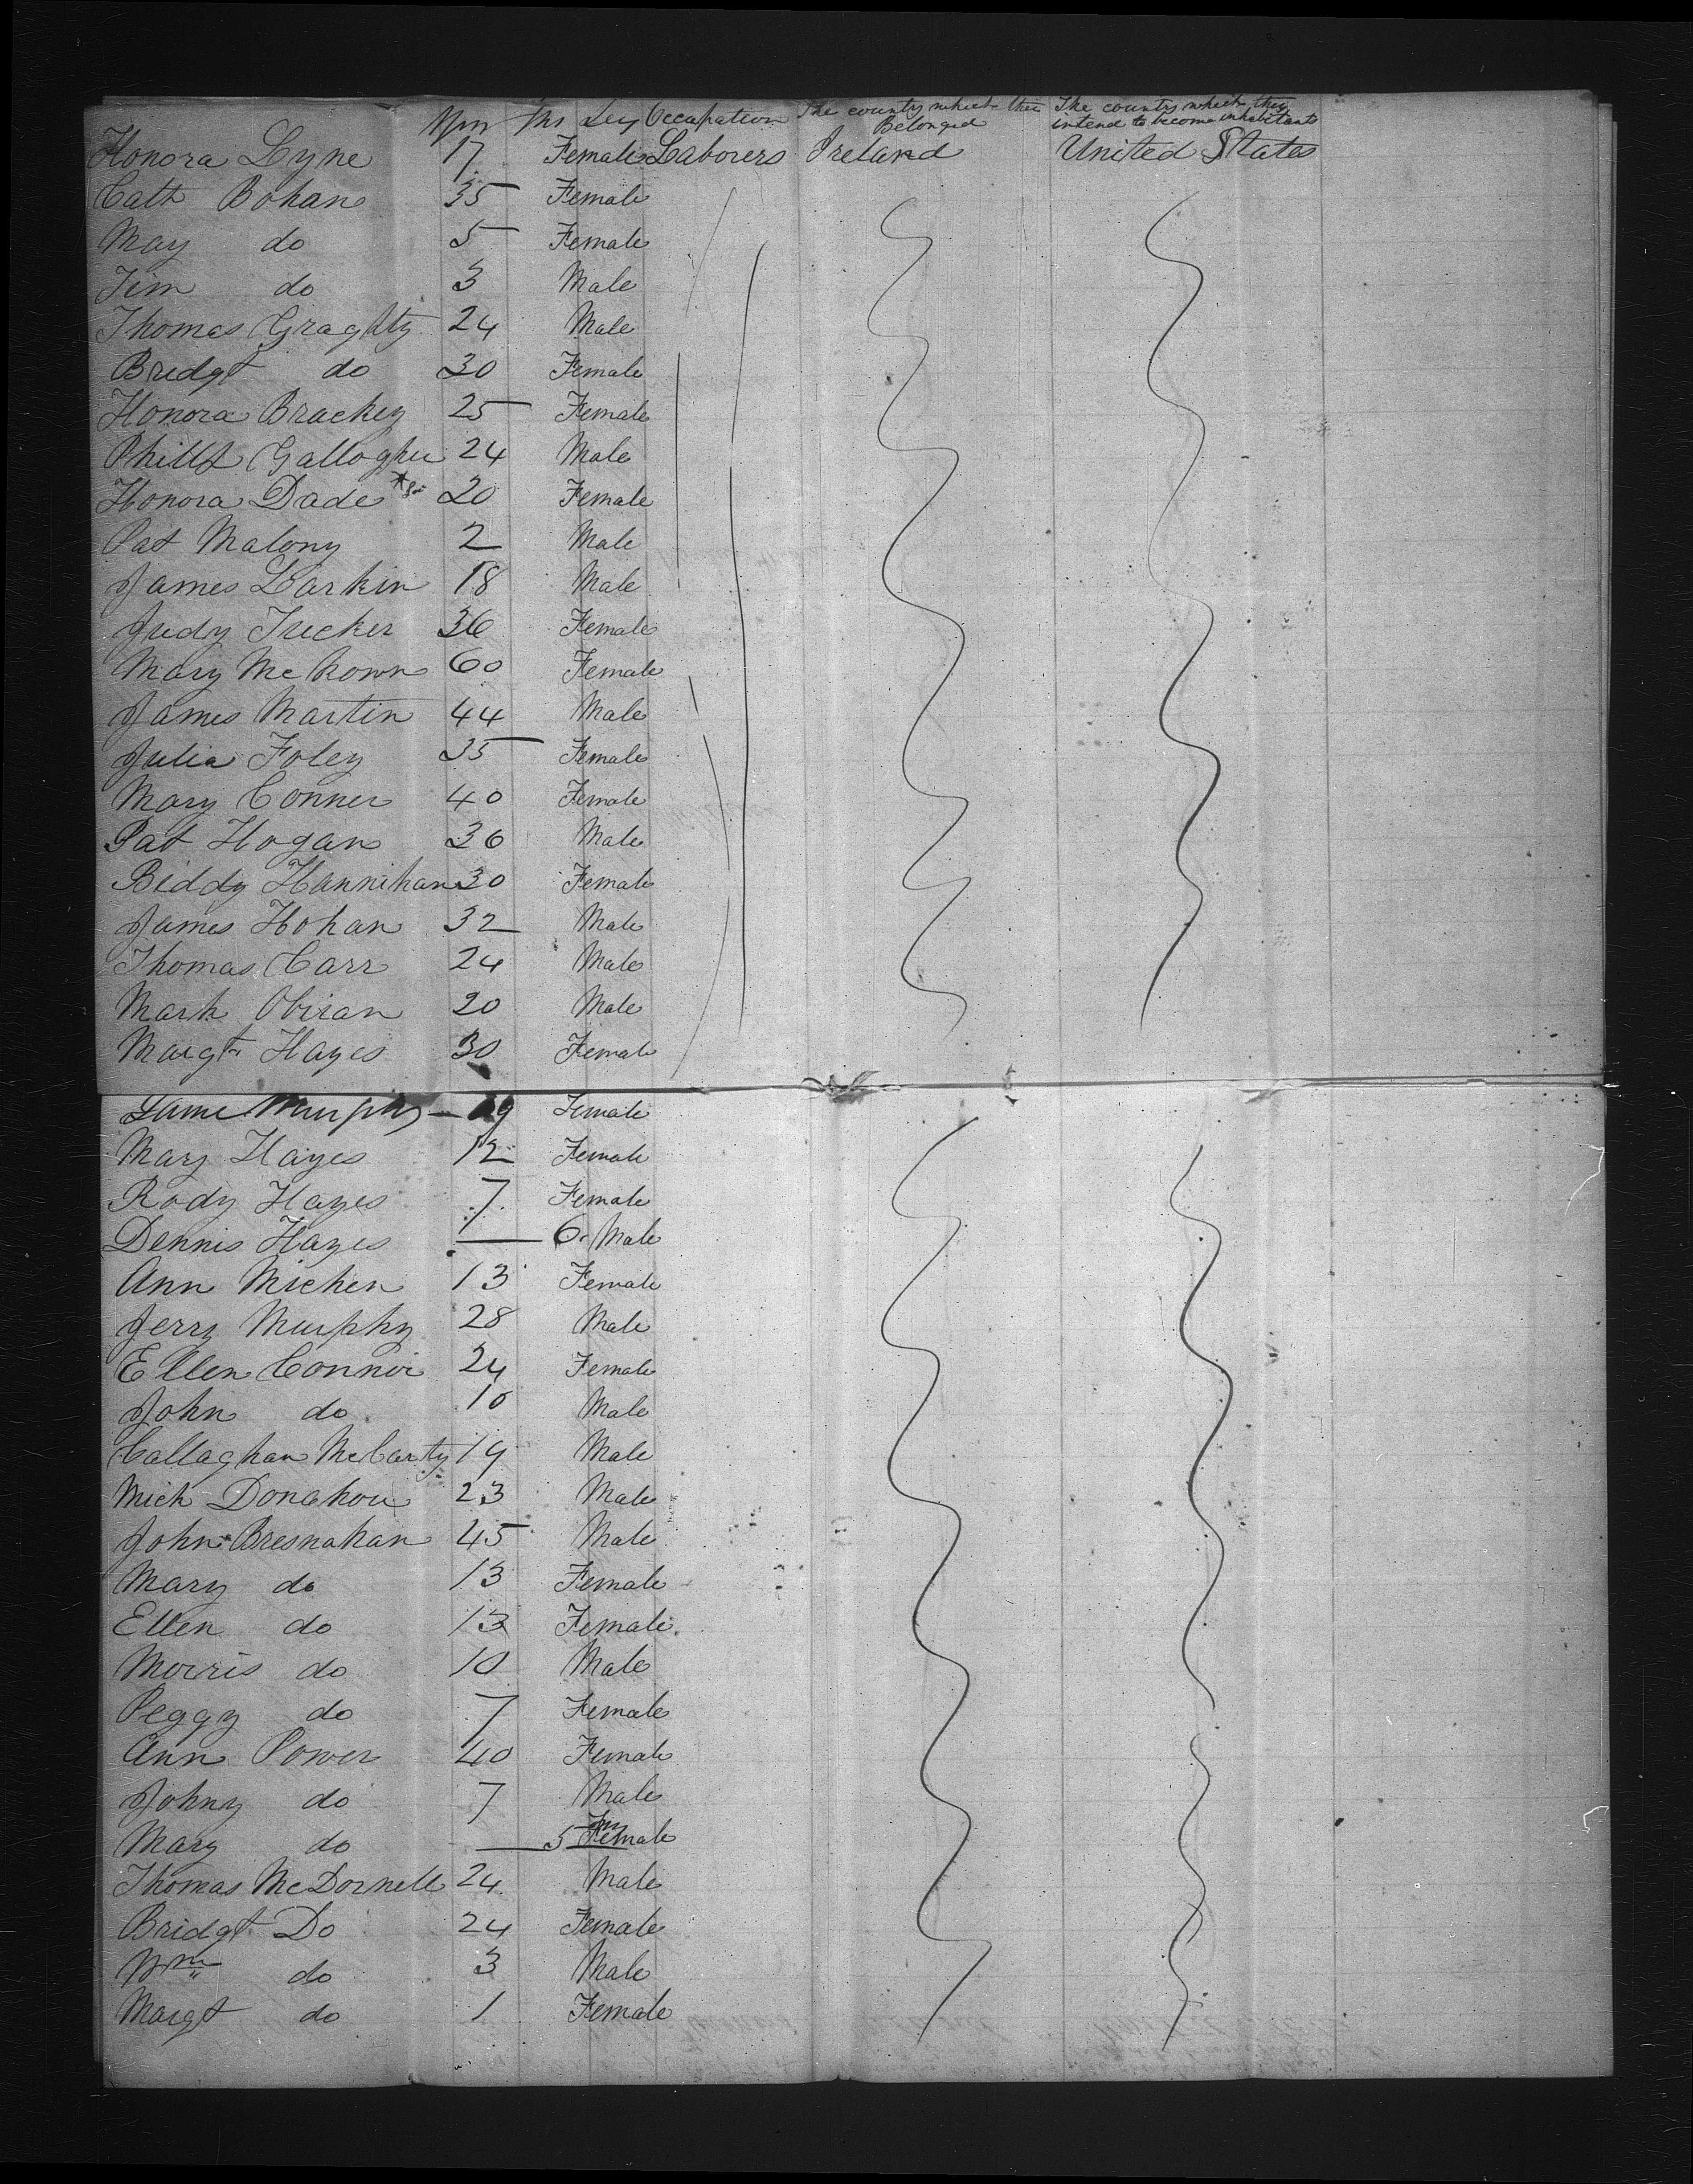 Yrs Ms Sex Occupation The country which they Belonged The country which they intend to become inhabitants
Honora Lyne 17 Female Laborers Ireland United States
Cath Bohan 35 Female
May do 5 Female
Tim do 3 Male
Thomas Graghty 24 Male
Bridgt do 30 Female
Honora Brackey 25 Female
Phill Gallogher 24 Male
Honora Dade 20 Female
Pat Malony 2 Male
James Larkin 18 Male
Judy Tucker 36 Female
Mary Mc Kown 60 Female
James Martin 44 Male
Julia Foley 35 Female
Mary Conner 40 Female
Pat Hogan 36 Male
Biddy Hannihan 30 Female
James Hohan 32 Male
Thomas Carr 24 Male
Mark Obiran 20 Male
Margt Hayes 30 Female
Murphy 19 Female
Mary Hayes 12 Female
Rody Hayes 7 Female
Dennis Hayes 6 Male
Ann Michen 13 Female
Jerry Murphy 28 Male
Ellen Connor 24 Female
John do 10 Male
Callaghan McCarty 19 Male
Mick Donahou 23 Male
John Bresnahan 45 Male
Mary do 13 Female
Ellen do 13 Female
Morris do 10 Male
Peggy do 7 Female
Ann Power 40 Female
Johny do 7 Male
Mary do 5 Female
Thomas McDornell 24 Male
Bridgt Do 24 Female
Wm do 3 Male
Margt do 1 Female